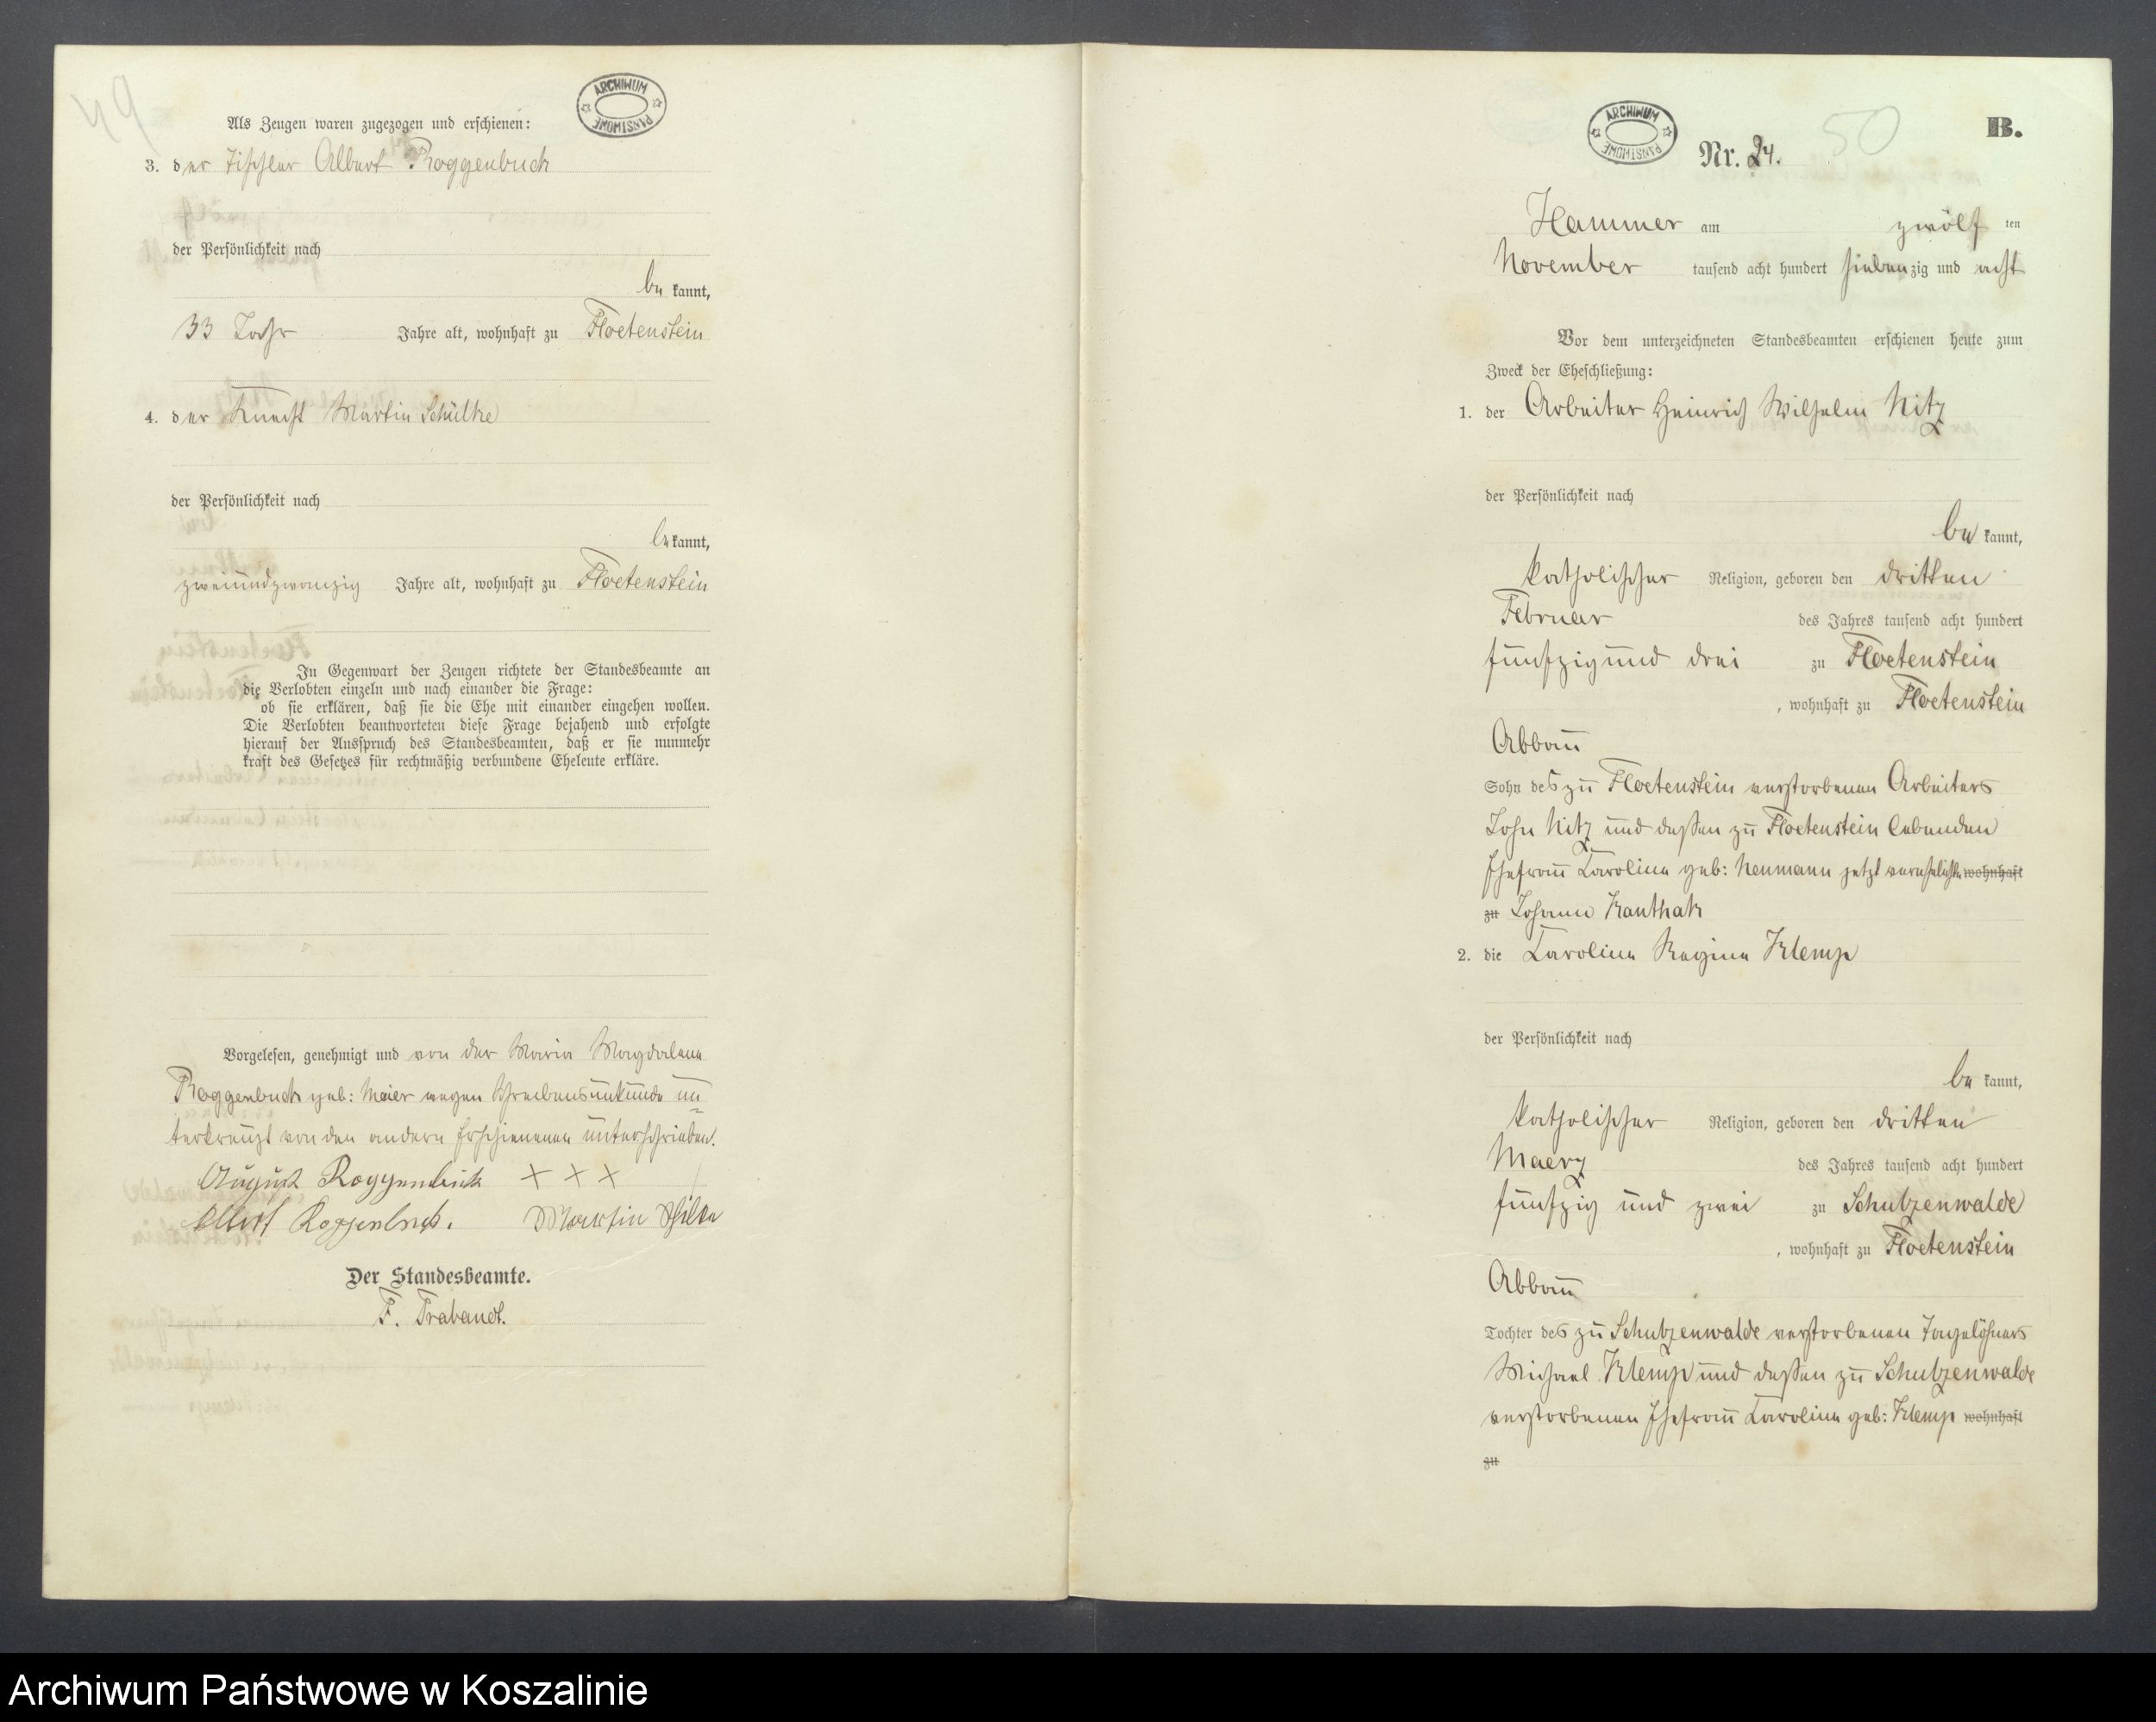 ARCHIWUM PAŃSTWOWE
Als Zeugen waren zugezogen und erschienen:
3. der Tischler Albert Roggenbuck
der Persönlichkeit nach
be kannt,
33 Jahr Jahre alt, wohnhaft zu Floetenstein
4. der Knecht Martin Schülke
der Persönlichkeit nach
be kannt,
zweiundzwanzig Jahre alt, wohnhaft zu Floetenstein
In Gegenwart der Zeugen richtete der Standesbeamte an
die Verlobten einzeln und nach einander die Frage:
ob sie erklären, daß sie die Ehe mit einander eingehen wollen.
Die Verlobten beantworteten diese Frage bejahend und erfolgte
hierauf der Ausspruch des Standesbeamten, daß er sie nunmehr
kraft des Gesetzes für rechtmäßig verbundene Eheleute erkläre.
Vorgelesen, genehmigt und von der Maria Magdalena
Roggenbuck geb: Maier wegen Schreibensunkunde un
terkreuzt von den andern Erschienenen unterschrieben.
August Roggenbuck + + +
Albert Roggenbuck. Martin Schilke
Der Standesbeamte.
F. Trabandt.
ARCHIWUM PAŃSTWOWE
50
B.
Nr. 24.
Hammer am zwölf ten
November tausend acht hundert siebenzig und acht
Vor dem unterzeichneten Standesbeamten erschienen heute zum
Zweck der Eheschließung:
1. der Arbeiter Heinrich Wilhelm Nitz
der Persönlichkeit nach
be kannt,
katholischer Religion, geboren den dritten
Februar des Jahres tausend acht hundert
fünfzig und drei zu Floetenstein
, wohnhaft zu Floetenstein
Abbau
Sohn des zu Floetenstein verstorbenen Arbeiters
Joh. Nitz und dessen zu Floetenstein lebenden
Ehefrau Karoline geb: Neumann jetzt verehelichte wohnhaft
zu Johann Kanthak
2. die Karoline Regine Klemp
der Persönlichkeit nach
be kannt,
katholischer Religion, geboren den dritten
Maerz des Jahres tausend acht hundert
fünfzig und zwei zu Schubzenwalde
, wohnhaft zu Floetenstein
Abbau
Tochter des zu Schubzenwalde verstorbenen Tagelöhners
Michael Klemp und dessen zu Schubzenwalde
verstorbenen Ehefrau Karoline geb: Klemp wohnhaft
zu
Archiwum Państwowe w Koszalinie